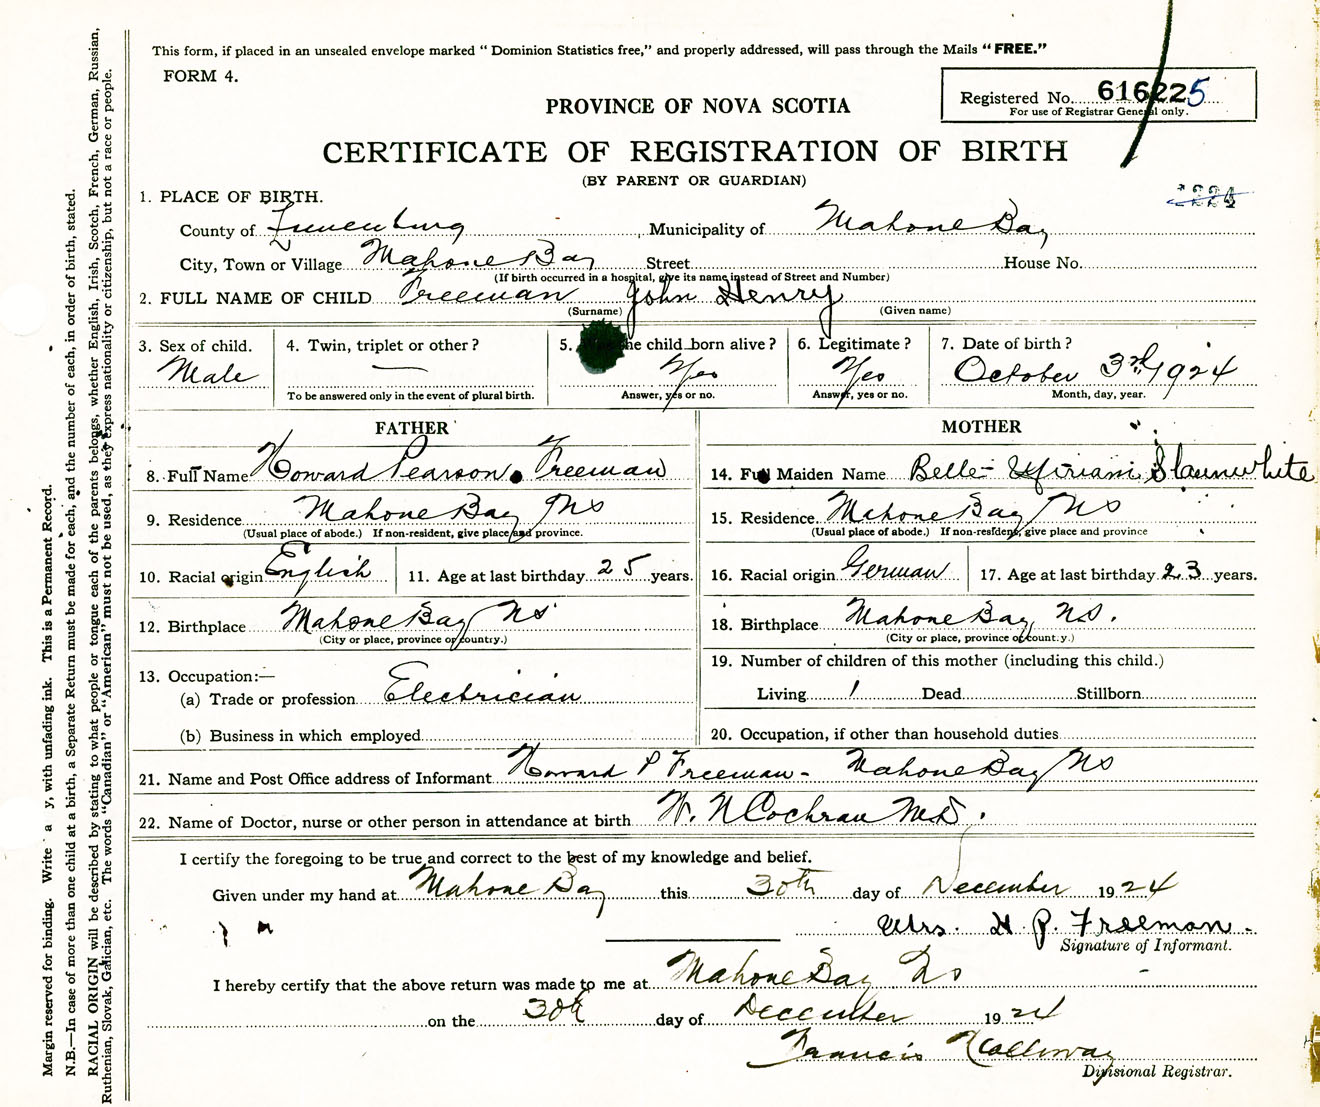 This form, if placed in an unsealed envelope marked “ Dominion Statistics free,” and properly addressed, will pass through the Mails “ FREE.”
FORM 4.
Registered No. 616225
For use of Registrar General only.
PROVINCE OF NOVA SCOTIA
CERTIFICATE OF REGISTRATION OF BIRTH
(BY PARENT OR GUARDIAN)
1. PLACE OF BIRTH.
County of Lunenburg Municipality of Mahone Bay
City, Town or Village Mahone Bay Street House No.
(If birth occurred in a hospital, give its name instead of Street and Number)
2. FULL NAME OF CHILD Freeman John Henry
(Surname) (Given name)
3. Sex of child. 4. Twin, triplet or other ? 5. the child born alive ? 6. Legitimate ? 7. Date of birth ?
Male — Yes Yes October 3rd 1924
To be answered only in the event of plural birth. Answer, yes or no. Answer, yes or no. Month, day, year.
FATHER MOTHER
8. Full Name Howard Pearson Freeman 14. Full Maiden Name Belle Miriam Slaunwhite
9. Residence Mahone Bay NS 15. Residence Mahone Bay NS
(Usual place of abode.) If non-resident, give place and province. (Usual place of abode.) If non-resident, give place and province
10. Racial origin English 11. Age at last birthday 25 years. 16. Racial origin German 17. Age at last birthday 23 years.
12. Birthplace Mahone Bay NS 18. Birthplace Mahone Bay NS.
(City or place, province or country.) (City or place, province or country.)
13. Occupation:— 19. Number of children of this mother (including this child.)
(a) Trade or profession Electrician Living 1 Dead Stillborn
(b) Business in which employed 20. Occupation, if other than household duties
21. Name and Post Office address of Informant Howard P Freeman - Mahone Bay NS
22. Name of Doctor, nurse or other person in attendance at birth W. N Cochran MD.
I certify the foregoing to be true and correct to the best of my knowledge and belief.
Given under my hand at Mahone Bay this 30th day of December 1924
Mrs. H P. Freeman.
Signature of Informant.
I hereby certify that the above return was made to me at Mahone Bay NS
on the 30th day of December 1924
Francis Holloway
Divisional Registrar.
Margin reserved for binding. Write y, with unfading ink. This is a Permanent Record.
N.B.—In case of more than one child at a birth, a Separate Return must be made for each, and the number of each, in order of birth, stated.
RACIAL ORIGIN will be described by stating to what people or tongue each of the parents belongs, whether English, Irish, Scotch, French, German, Russian,
Ruthenian, Slovak, Galician, etc. The words “Canadian” or “American” must not be used, as they express nationality or citizenship, but not a race or people.